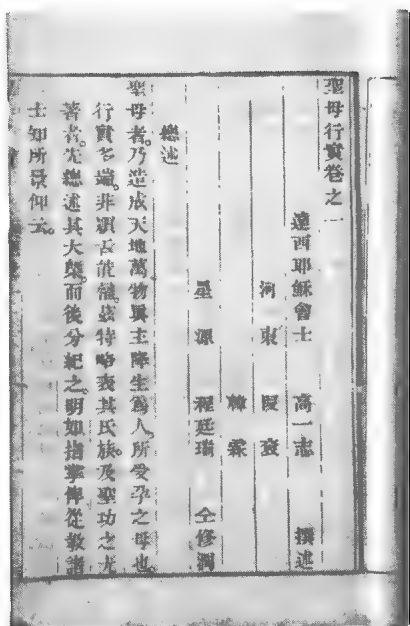 聖母行實卷之一
遠西耶穌會士 高一志 撰述
河東 段袞
韓霖
星源 程廷瑞 仝修潤
總述
聖母者。乃造成天地萬物眞主降生爲人。所受孕之母也。
行實多端。非舌能茲特略表其氏族。及聖功之尤
著者。先總述其大槩。而後分紀之。明如指掌俾從敎諸
士知所景仰云。